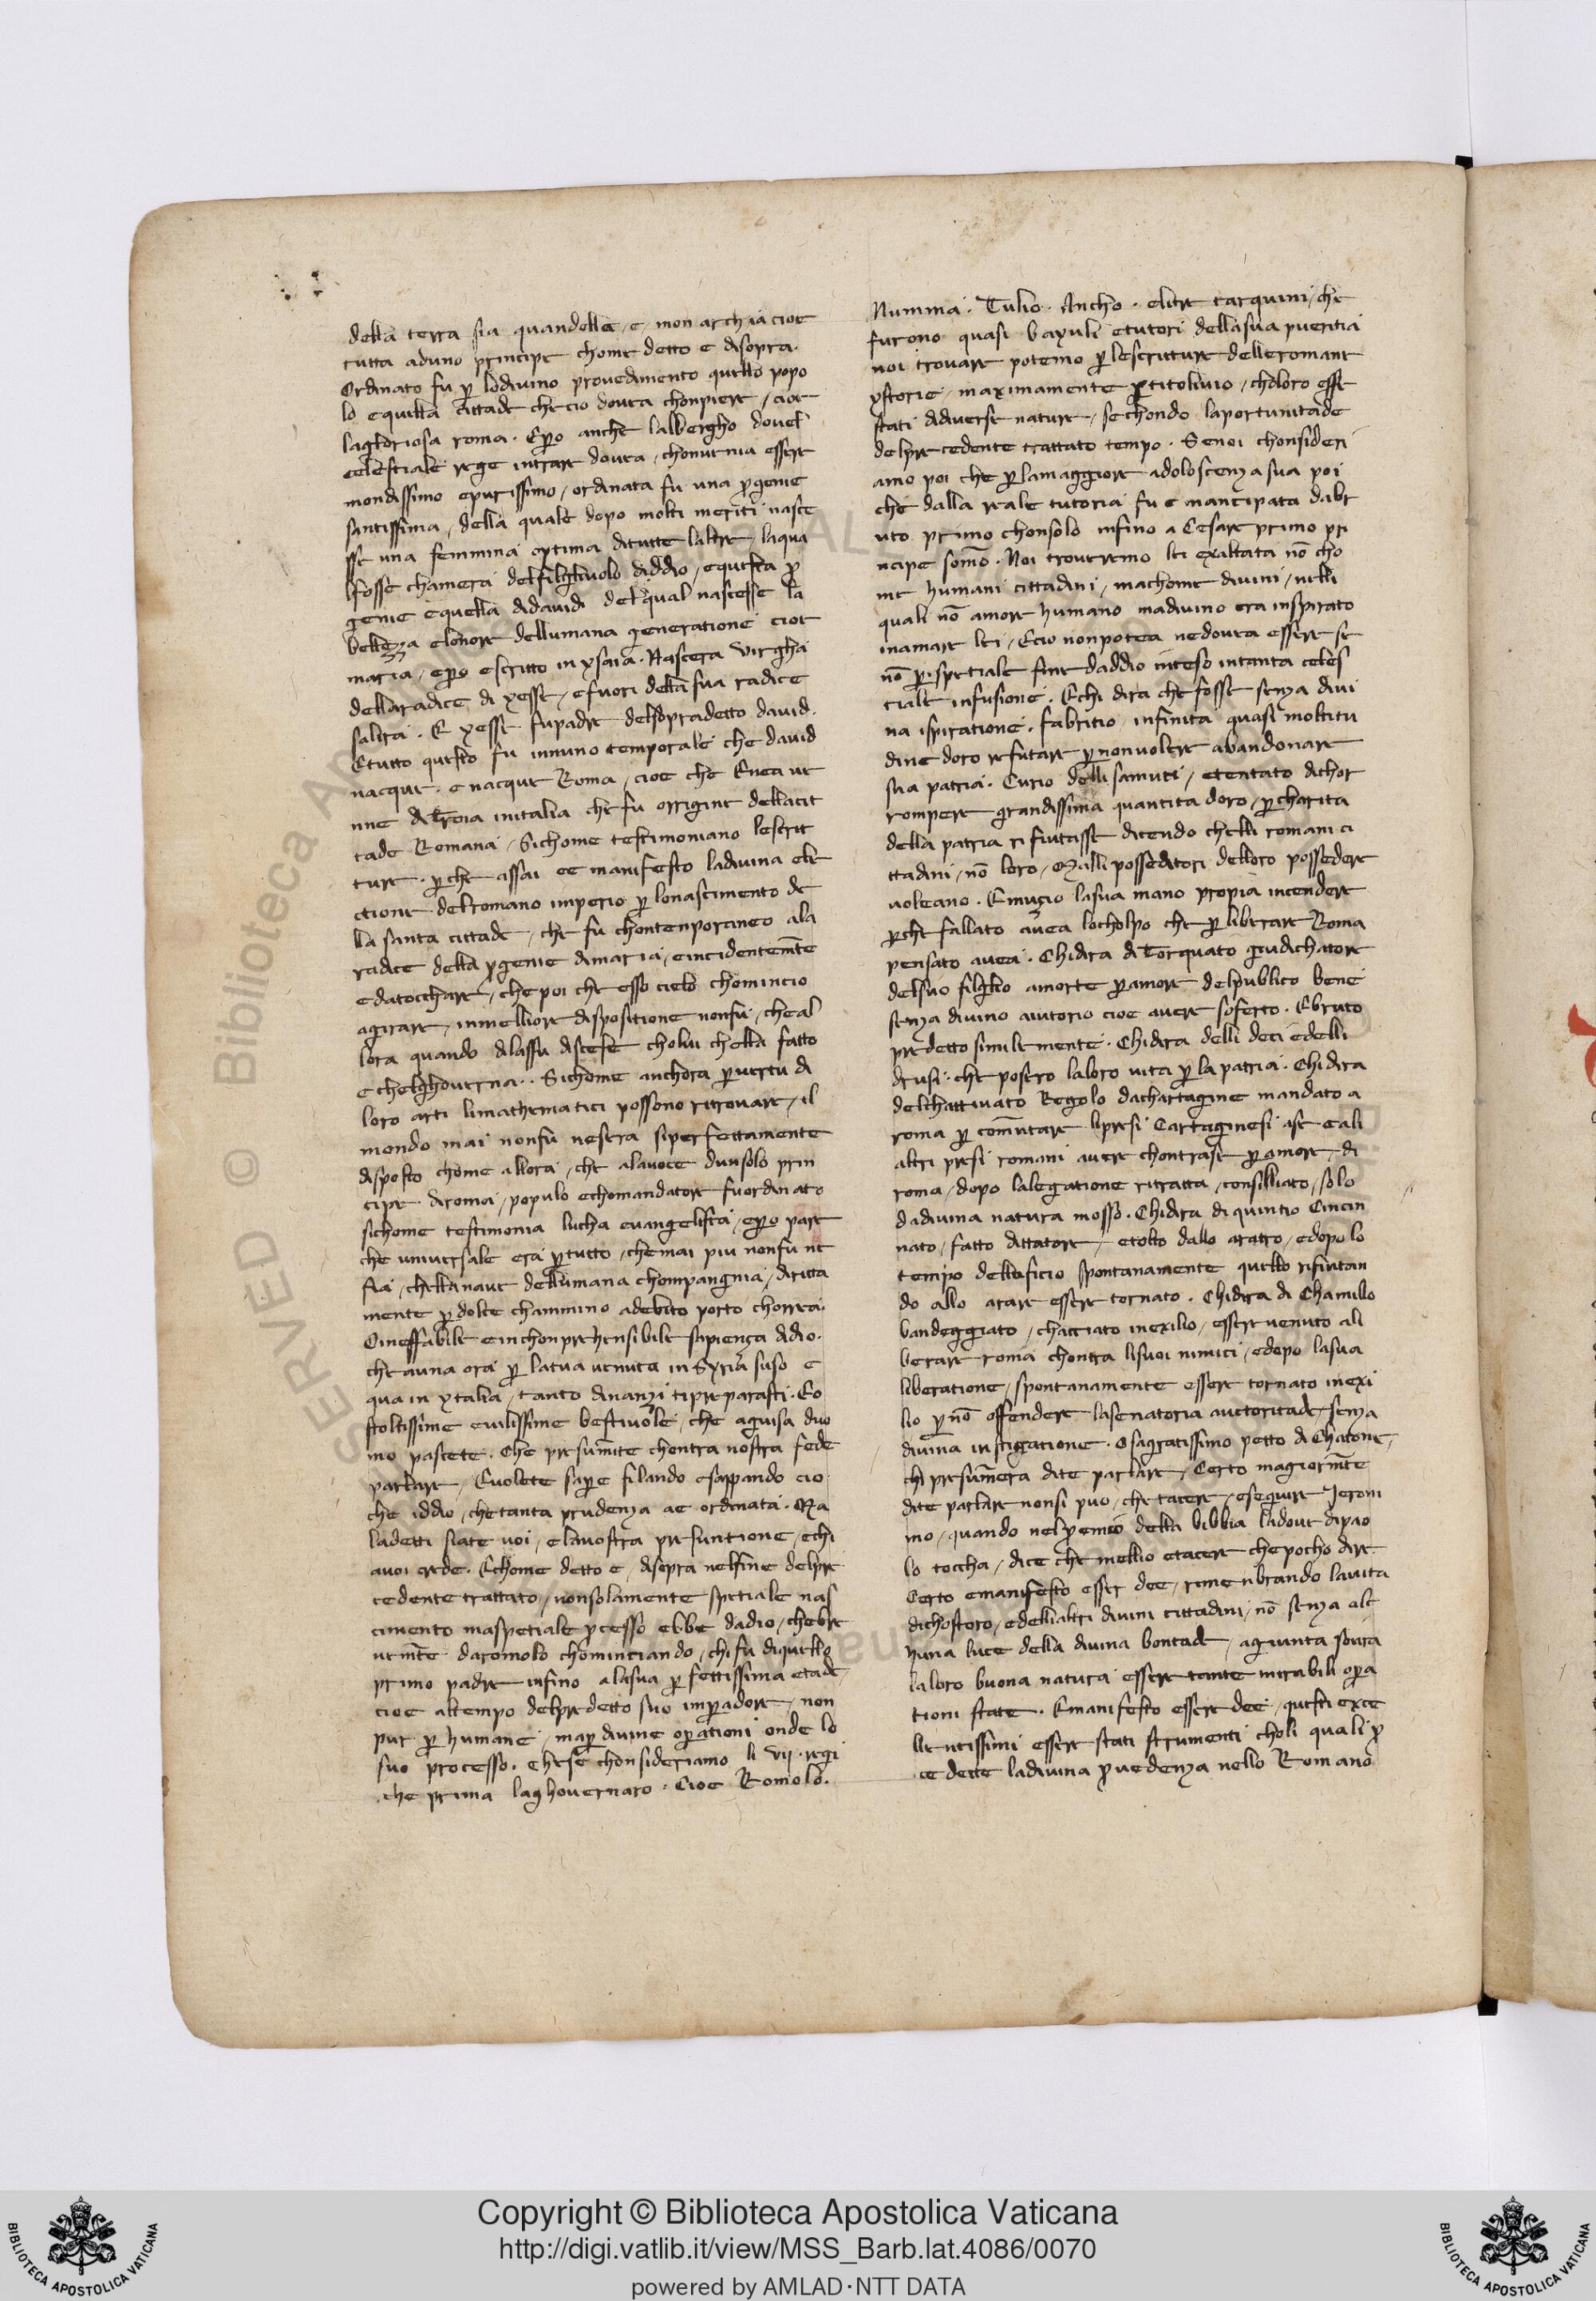 della terra sia quandella, e, monarchia cioe
tutta aduno principe chome detto e disopra.
Ordinato fu p̲ lodivino provedimento quello popo
lo equella cittade checio dovea chonpiere, cioe
lagloriosa roma. Ep̲o anche lalbergho dovel
celestiale rege intrare dovea, chonvenia essere
mondissimo epurissimo, ordinata fu una p̲genie
santissima, della quale dopo molti meriti nasce
sse una femmina optima ditutte laltre, laqua
lfosse chamera delfilgliuolo diddio, equesta p̲
genie equella didavid del qual nascesse la
bellezza elonore dellumana generatione cioe
maria, ep̲o escritto in ysaia. Nascera virgha
dellaradice di yesse, efuori della sua radice
salira. E yesse fupadre delsopradetto david.
Etutto questo fu innuno temporale che david
nacque. enacque Roma, cioe che Enea ve
nne ditroia initalia che fu origine dellacit
tade Romana, Sichome testimoniano lescrit
ture. p̲che assai ee manifesto ladivina ele
ctione delromano imperio p̲ lonascimento de
lla santa cittade, che fu chontenporaneo ala
radice della p̲genie dimaria, eincidentem̅te
edatocchare, che poi che esso cielo chomincio
agirare, inmelliore dispositione nonfu, cheal
lora quando dilassu discese cholui chella fatto
echelghoverna.. Sichome anchora p̲vertu di
loro arti limathematici possono ritrovare, il
mondo mai nonfu nesera siperfettamente
disposto chome allora, che alavoce dunsolo prin
cipe diroma, populo echomandatore fuordinato
sichome testimonia lucha evangelista, ep̲o pace
che universale era p̲tutto, chemai piu nonfu ne
fia, chellanave dellumana chompangnia, diritta
mente p̲ dolce chammino adebito porto chorrea.
Oineffabile eincho̅prehensibile sapiença didio.
che auna ora p̲ latua venuta in Syria suso e
qua in ytalia, tanto dinanzi tipreparasti. Eo
stoltissime evilissime bestivole, che aguisa duo
mo pascete. Che presum̅ite chontra nostra fede
parlare, Evolete sap̲e filando esappando cio
che iddio, chetanta prudenza ae ordinata. Ma
ladetti siate voi, elavostra presuntione, echi
avoi crede. Echome detto e, disopra nelfine delpre
cedente trattato, nonsolamente spetiale nas
cimento maspetiale p̲cesso ebbe dadio, chebre
vem̅te daromolo chominciando, chi fu diquello
primo padre infino alasua p̲fettissima etade,
cioe altempo delpredetto suo imp̲adore, non
pur p̲ humane, map̲ divine op̲ationi onde lo
suo processo. Chese chonsideriamo li vij. regi
che prima laghovernaro. Cioe Romolo.
Numma. Tulio. Ancho. elitre tarquini, che
furono quasi baxuli etutori dellasua pueritia
noi trovare potemo p̲ lescritture delleromane
ystorie, maximamente p̲titolivio, choloro esse
stati didiverse nature, sechondo laportunitade
delprecedente trattato tempo. Senoi chonsideri
amo poi che p̲lamaggiore adoloscenza sua poi
che dalla reale tutoria fu emancipata dabr
uto primo chonsolo infino a Cesare primo pri
ncipe som̅o. Noi troveremo lei exaltata no̅ cho
me humani cittadini, machome divini, nelli
quali no̅ amore humano madivino era inspirato
inamare lei, Ecio nonpotea nedovea essere se
no̅ p̲ispetiale fine daddio inteso intanta celes
tiale infusione. Echi dira che fosse senza divi
na ispiratione, fabritio infinita quasi moltitu
dine doro refutare p̲ nonvolere abandonare
sua patria. Curio delli sanniti, etentato dichor
rompere grandissima quantita doro, p̲charita
della patria rifiutasse dicendo chelli romani ci
ttadini, no̅ loro, Malli posseditori delloro possedere
voleano. Emuçio lasua mano propia incendere
p̲che fallato avea locholpo che p̲ liberare Roma
pensato avea. Chidira di torquato giudichatore
delsuo filglio amorte p̲amore delpublico bene
senza divino aiutorio cioe avere soferto. Ebruto
predetto similemente. Chidira delli deci edelli
drusi. che posero laloro vita p̲ la patria. Chidira
delchattivato Regolo dachartagine mandato a
roma p̲ com̅utare lipresi Cartaginesi ase eali
altri presi romani avere chontrase p̲ amore, di
roma, dopo lalegatione ritratta, consilliato, solo
dadivina natura mosso. Chidira di quintio Cincin
nato, fatto dittatore, etolto dallo aratro, edopo lo
tempo dellaficio spontanamente quello rifiutan
do allo arare essere tornato. Chidira di Chamillo
bandeggiato, chacciato inexilio, essere venuto ali
berare roma chontra lisuoi nimici, edopo lasua
liberatione, spontanamente essere tornato inexi
lio p̲ no̅ offendere lasenatoria auctoritade, senza
divina instigatione. Osagratissimo petto di Chatone,
chi presum̅era dite parlare, Certo magiorm̅te
dite parlare nonsi puo, che tacere, eseguire Jeroni
mo, quando nelp̲emio della bibbia ladove dipao
lo toccha, dice che mellio etacere che pocho dire
Certo emanifesto esser dee, rimenbrando lavita
dichostoro, edellialtri divini cittadini, no̅ senza alc
huna luce della divina bontade, agiunta soura
laloro buona natura essere tante mirabili op̲a
tioni state. Emanifesto essere dee, questi exce
llentissimi essere stati strumenti choli quali p̲
cedette ladivina p̲vedenza nello Romano
Copyright © Biblioteca Apostolica Vaticana
http://digi.vatlib.it/view/MSS_Barb.lat.4086/0070
powered by AMLAD·NTT DATA
BIBLIOTECA APOSTOLICA VATICANA
BIBLIOTECA APOSTOLICA VATICANA